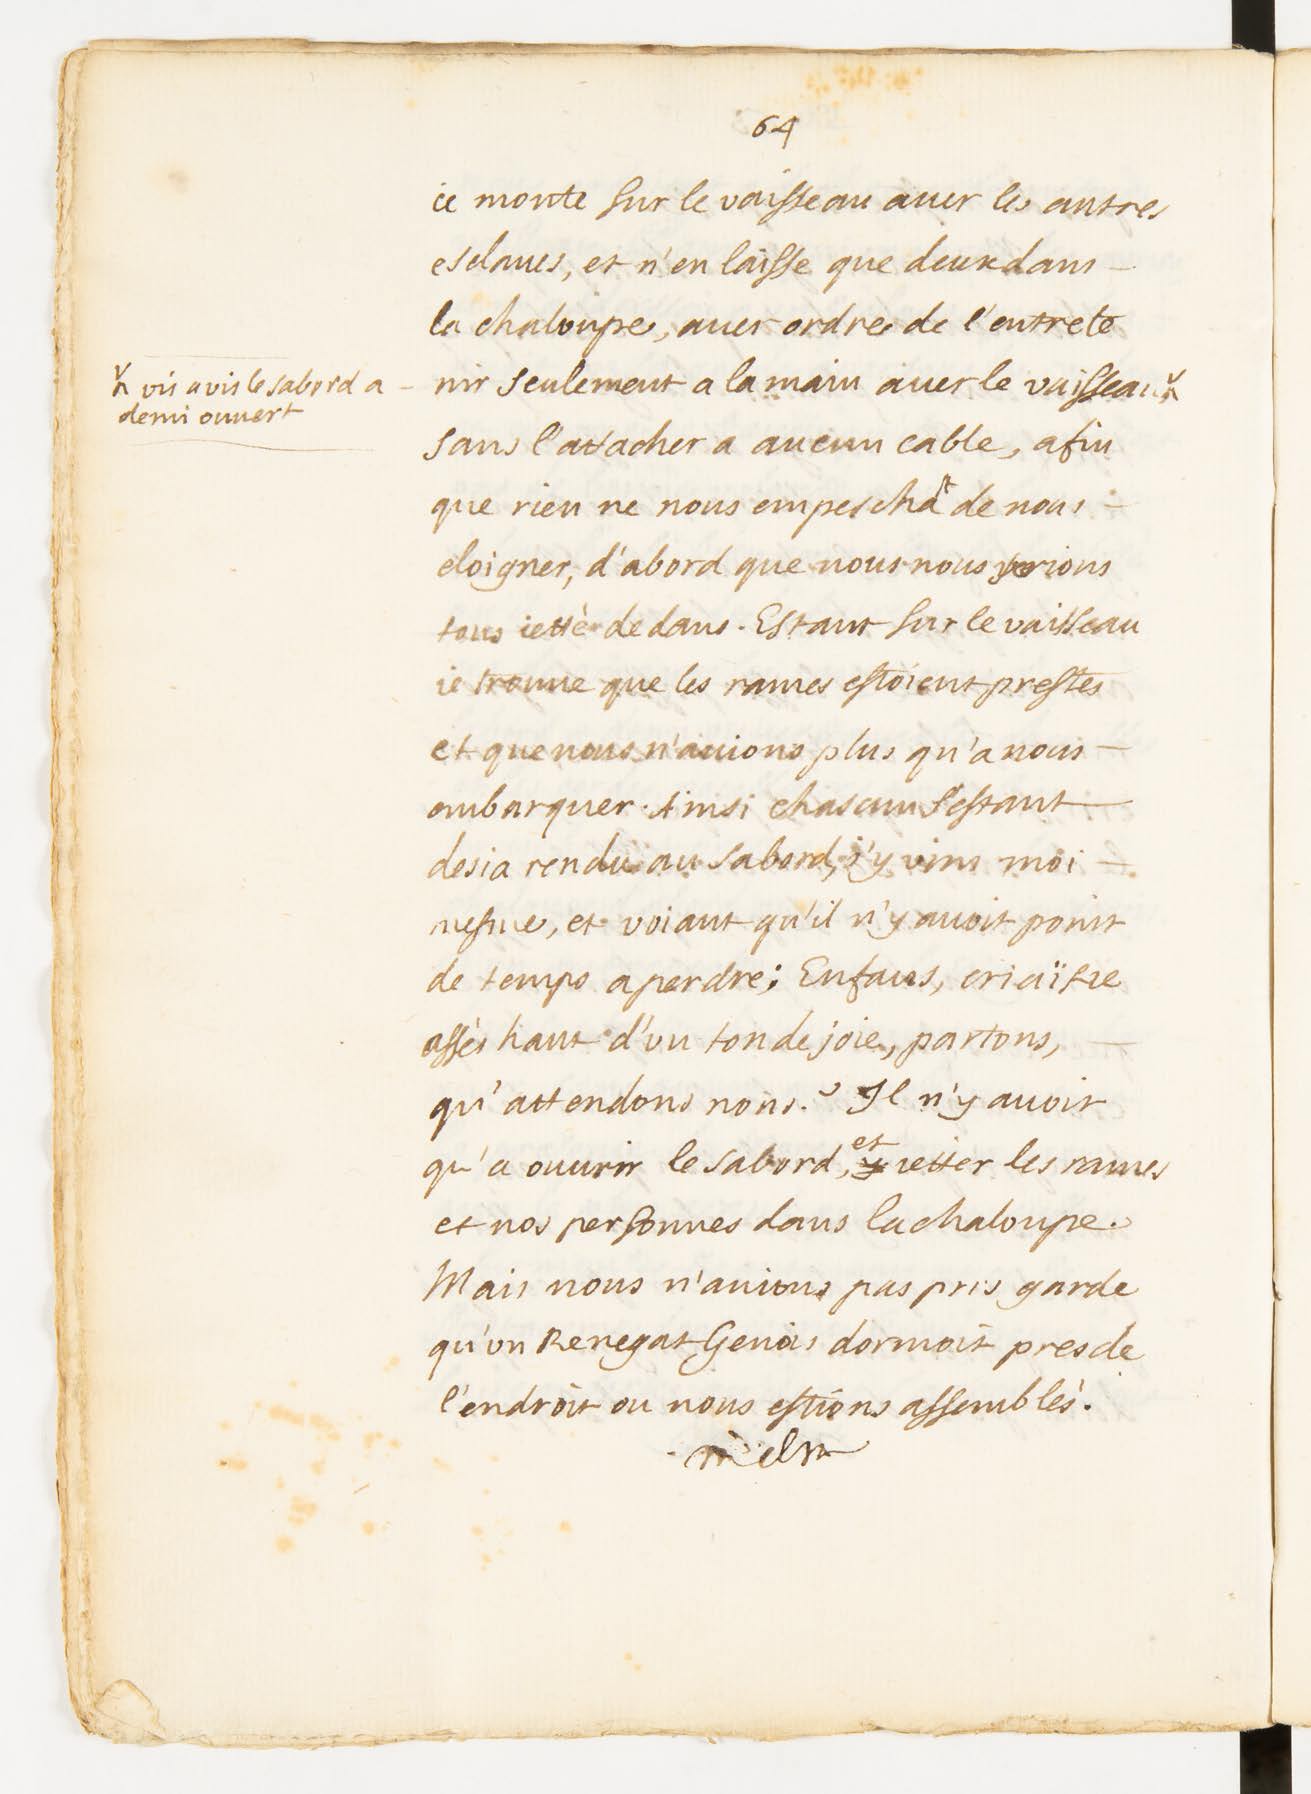 64
ie monte sur le vaisseau auec les autres
esclaues, et n'en laisse que deux dans -
la chaloupe, auec ordre de l'entrete
⚹ vis a vis le sabord a - nir seulement a la main auec le vaisseau ⚹
demi ouuert
sans l'attacher a aucun cable, afin
que rien ne nous empeschât de nous -
eloigner, d'abord que nous nous serions
tous iettès dedans. Estant sur le vaisseau
ie trouue que les rames estoient prestes
et que nous n'auions plus qu'a nous -
embarquer. Ainsi chascun s'estant
desia rendu au sabord, i'y vins moi -
mesme, et voiant qu'il n'y auoit point
de temps a perdre; Enfans, criai ie
assès haut d'vn ton de joie, partons, -
qu'attendons nous? Il n'y auoit
qu'a ouurir le sabord, et ietter les rames
et nos personnes dans la chaloupe.
Mais nous n'auions pas pris garde
qu'vn Renegat Genois dormoit pres de
l'endroit ou nous estions assemblès.